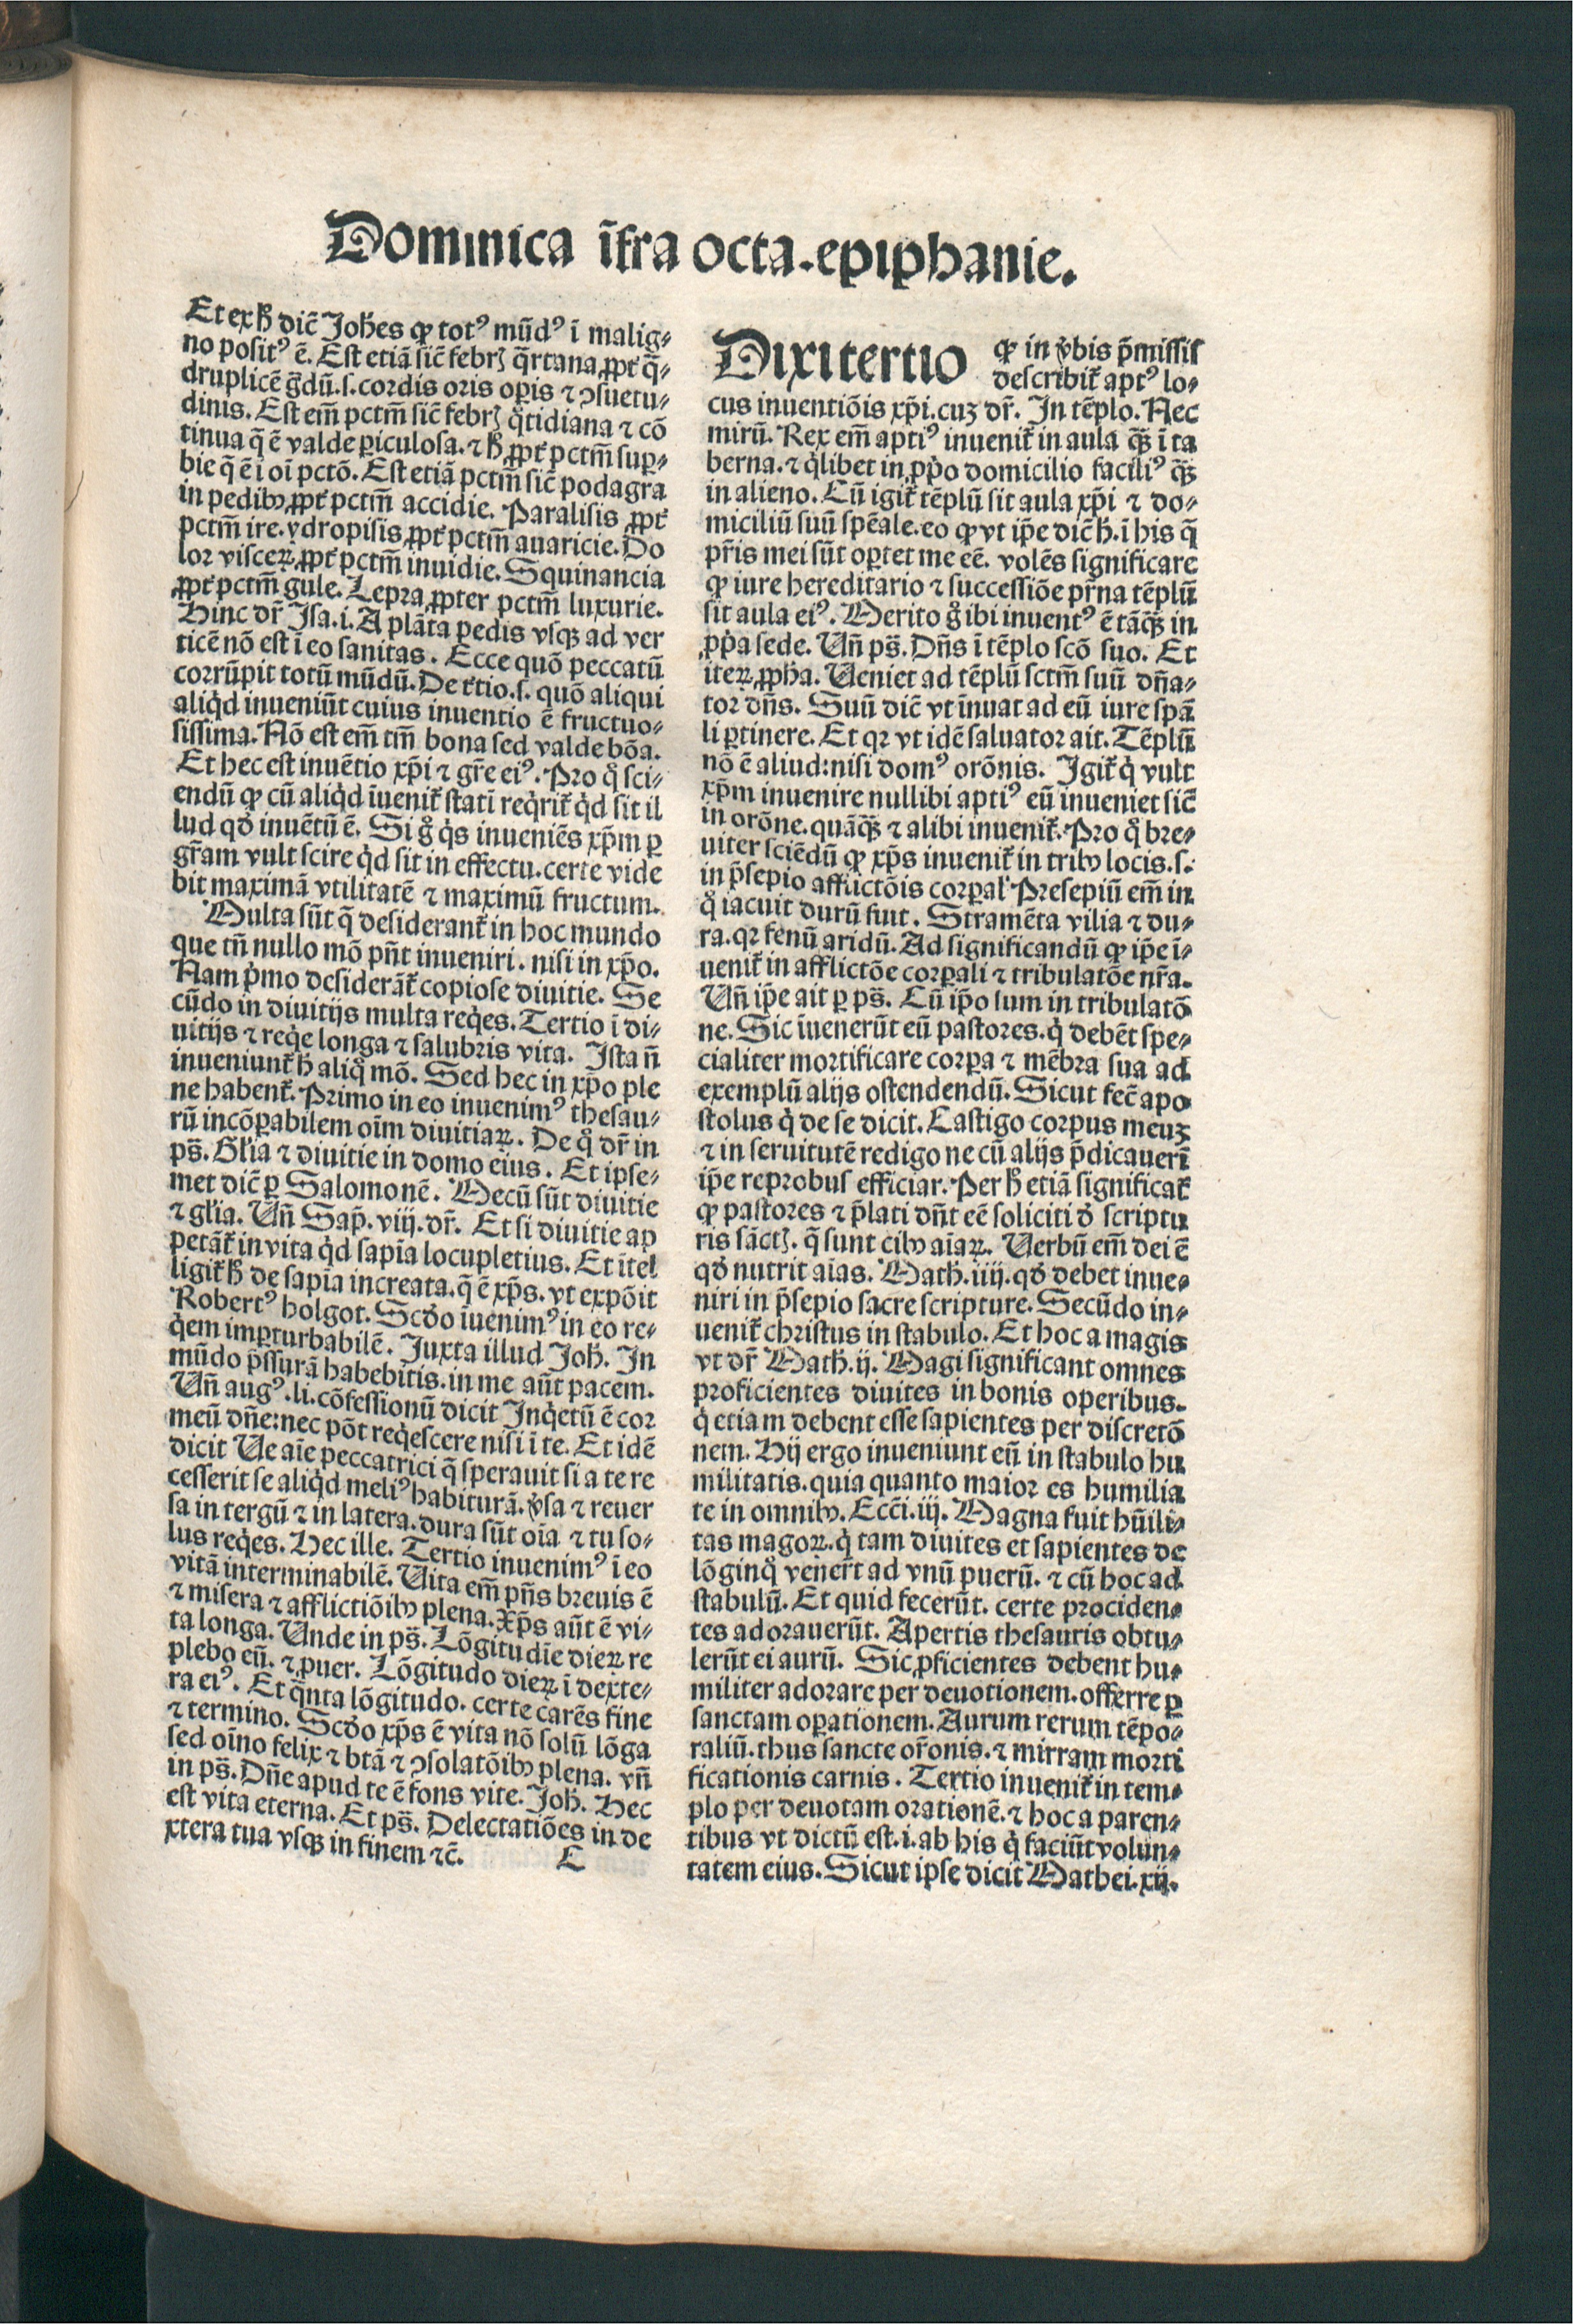 Dominica ĩfra octa.epiphanie.
Et ex ħ dic̃ Joħes ꝙ totꝰ mũdꝰ ĩ malig⸗
no positꝰ ẽ. Est etiã sic̃ febrꝭ q̃rtana, ꝓpt̃ q̃⸗
druplicẽ g̃dũ.ſ.cordis oris oꝑis ⁊ ꝯsuetu⸗
dinis. Est em̃ pctm̃ sic̃ febrꝭ q̃tidiana ⁊ cõ
tinua q̃ ẽ valde ꝑiculosa.⁊ ħ ꝓpt̃ pctm̃ suꝑ⸗
bie q̃ ẽ ĩ oĩ pctõ. Est etiã pctm̃ sic̃ podagra
in pedibꝰ ꝓpt̃ pctm̃ accidie. Paralisis ꝓpt̃
pctm̃ ire. ydropisis ꝓpt̃ pctm̃ auaricie. Do
lor viscerꝝ ꝓpt̃ pctm̃ inuidie. Squinancia
ꝓpt̃ pctm̃ gule. Lepra ꝓpter pctm̃ luxurie.
Hinc dr̃ Isa.i. A plãta pedis vsqꝫ ad ver
ticẽ nõ est ĩ eo sanitas. Ecce quõ peccatũ
corrũpit totũ mũdũ. De t̃tio.ſ. quõ aliqui
aliq̇d inueniũt cuius inuentio ẽ fructuo⸗
sissima. Nõ est em̃ tm̃ bona sed valde bõa.
Et hec est inuẽtio xp̃i ⁊ gr̃e eiꝰ. Pro q̊ sci⸗
endũ ꝙ cũ aliq̇d ĩuenit̃ stati req̇rit̃ q̇d sit il
lud qđ inuẽtũ ẽ. Si g̊ q̇s inueniẽs xp̃m ꝑ
gr̃am vult scire q̇d sit in effectu. certe vide
bit maximã vtilitatẽ ⁊ maximũ fructum.
Multa sũt q̃ desiderant̃ in hoc mundo
que tñ nullo mõ pñt inueniri. nisi in xp̃o.
Nam p̍mo desiderãt̃ copiose diuitie. Se
cũdo in diuitijs multa req̇es. Tertio ĩ di⸗
uitijs ⁊ req̇e longa ⁊ salubris vita. Ista ñ
inueniunt̃ ħ aliq̊ mõ. Sed hec in xp̃o ple
ne habent̃. Primo in eo inuenimꝰ thesau⸗
rũ incõꝑabilem oĩm diuitiaꝝ. De q̊ dr̃ in
ps̃. Gl̃ia ⁊ diuitie in domo eius. Et ipse⸗
met dic̃ ꝑ Salomonẽ. Mecũ sũt diuitie
⁊ gl̃ia. Uñ Sap̃. viij. dr̃. Et si diuitie ap
petãt̃ in vita q̇d sapĩa locupletius. Et ĩtel
ligit̃ ħ de sapĩa increata. q̃ ẽ xp̃s. vt expõit
Robertꝰ holgot. Scđo ĩuenimꝰ in eo re⸗
q̇em imꝑturbabilẽ. Iuxta illud Joħ. In
mũdo p̃ssurã habebitis. in me aũt pacem.
Uñ augꝰ.li.cõfessionũ dicit Inq̇etũ ẽ cor
meũ dñe: nec põt req̇escere nisi ĩ te. Et idẽ
dicit Ue aĩe peccatrici q̃ sperauit si a te re
cesserit se aliq̇d meliꝰ habiturã. v̓sa ⁊ reuer
sa in tergũ ⁊ in latera. dura sũt oĩa ⁊ tu so⸗
lus req̇es. Hec ille. Tertio inuenimꝰ ĩ eo
vitã interminabilẽ. Uita em̃ pñs breuis ẽ
⁊ misera ⁊ afflictiõibꝰ plena. Xp̃s aũt ẽ vi⸗
ta longa. Unde in ps̃. Lõgitudĩe dieꝝ re
plebo eũ. ⁊ ꝓuer. Lõgitudo dieꝝ ĩ dexte⸗
ra eiꝰ. Et q̃nta lõgitudo. certe carẽs fine
⁊ termino. Scđo xp̃s ẽ vita nõ solũ lõga
sed oĩno felix ⁊ btã ⁊ ꝯsolatõibꝰ plena. vñ
in ps̃. Dñe apud te ẽ fons vite. Joħ. Hec
est vita eterna. Et ps̃. Delectatiões in de
xtera tua vsqꝫ in finem ⁊c̃.
C
Dixi tertio ꝙ in v̓bis p̃missis
describit̃ aptꝰ lo⸗
cus inuentiõis xp̃i. cuꝫ dr̃. In tẽplo. Nec
mirũ. Rex em̃ aptiꝰ inuenit̃ in aula q̃ꝫ ĩ ta
berna. ⁊ q̇libet in ꝓp̍o domicilio faciliꝰ q̃ꝫ
in alieno. Cũ igit̃ tẽplũ sit aula xp̃i ⁊ do⸗
miciliũ suũ spẽale. eo ꝙ vt ip̃e dic̃ ħ. ĩ his q̃
pr̃is mei sũt oꝑtet me eẽ. volẽs significare
ꝙ iure hereditario ⁊ successiõe pr̃na tẽplũ
sit aula eiꝰ. Merito g̊ ibi inuentꝰ ẽ tãq̃ꝫ in
ꝓp̍a sede. Uñ ps̃. Dñs ĩ tẽplo scõ suo. Et
iteꝝ ꝓpħa. Ueniet ad tẽplũ sctm̃ suũ dña⸗
tor dñs. Suũ dic̃ vt ĩnuat ad eũ iure spã
li ꝑtinere. Et qꝛ vt idẽ saluator ait. Tẽplũ
nõ ẽ aliud: nisi domꝰ orõnis. Igit̃ q̇ vult
xp̃m inuenire nullibi aptiꝰ eũ inueniet sic̃
in orõne. quãq̃ꝫ ⁊ alibi inuenit̃. Pro q̊ bre⸗
uiter sciẽdũ ꝙ xp̃s inuenit̃ in tribꝰ locis.ſ.
in p̃sepio afflictõis corꝑal̓ Presepiũ em̃ in
q̊ iacuit durũ fuit. Stramẽta vilia ⁊ du⸗
ra. qꝛ fenũ aridũ. Ad significandũ ꝙ ip̃e ĩ⸗
uenit̃ in afflictõe corꝑali ⁊ tribulatõe nr̃a.
Uñ ip̃e ait ꝑ ps̃. Cũ ip̃o sum in tribulatõ
ne. Sic ĩuenerũt eũ pastores. q̇ debẽt spe⸗
cialiter mortificare corꝑa ⁊ mẽbra sua ad
exemplũ alijs ostendendũ. Sicut fec̃ apo
stolus q̇ de se dicit. Castigo corpus meuꝫ
⁊ in seruitutẽ redigo ne cũ alijs p̃dicauerĩ
ip̃e reprobus efficiar. Per ħ etiã significat̃
ꝙ pastores ⁊ p̃lati dñt eẽ soliciti đ scriptu
ris sãctꝭ. q̃ sunt cibꝰ aĩaꝝ. Uerbũ em̃ dei ẽ
qđ nutrit aĩas. Math̃. iiij. qđ debet inue⸗
niri in p̃sepio sacre scripture. Secũdo in⸗
uenit̃ christus in stabulo. Et hoc a magis
vt dr̃ Math̃.ij. Magi significant omnes
proficientes diuites in bonis operibus.
q̇ etiam debent esse sapientes per discretõ
nem. Hij ergo inueniunt eũ in stabulo hu
militatis. quia quanto maior es humilia
te in omnibꝰ. Ecc̃i.iij. Magna fuit hũili⸗
tas magoꝝ. q̇ tam diuites et sapientes de
lõginq̊ venert̃ ad vnũ pueꝝũ. ⁊ cũ hoc ad
stabulũ. Et quid fecerũt. certe prociden⸗
tes adorauerũt. Apertis thesauris obtu⸗
lerũt ei aurũ. Sic ꝓficientes debent hu⸗
militer adorare per deuotionem. offerre ꝑ
sanctam oꝑationem. Aurum rerum tẽpo⸗
raliũ. thus sancte or̃onis. ⁊ mirram morti
ficationis carnis. Tertio inuenit̃ in tem⸗
plo per deuotam orationẽ. ⁊ hoc a paren⸗
tibus vt dictũ est.i. ab his q̇ faciũt volun⸗
tatem eius. Sicut ipse dicit Mathei.xij.